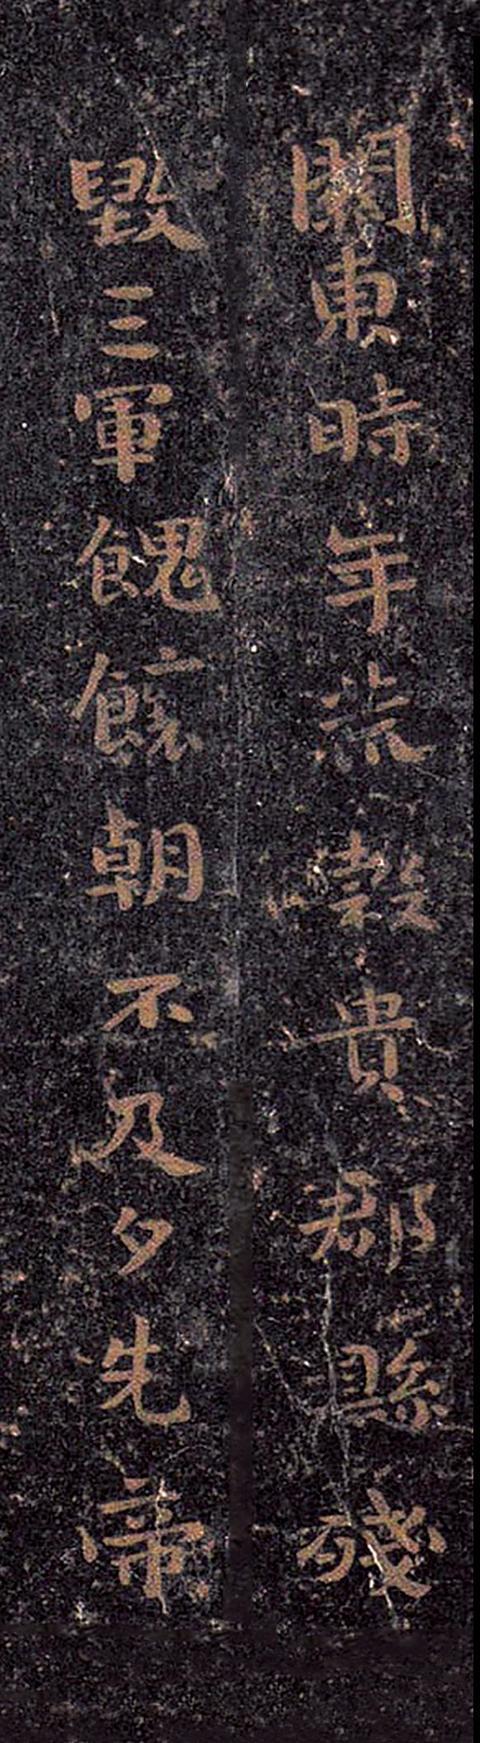 關東時年荒穀貴郡縣殘
毀三軍餽饟朝不及夕先帝